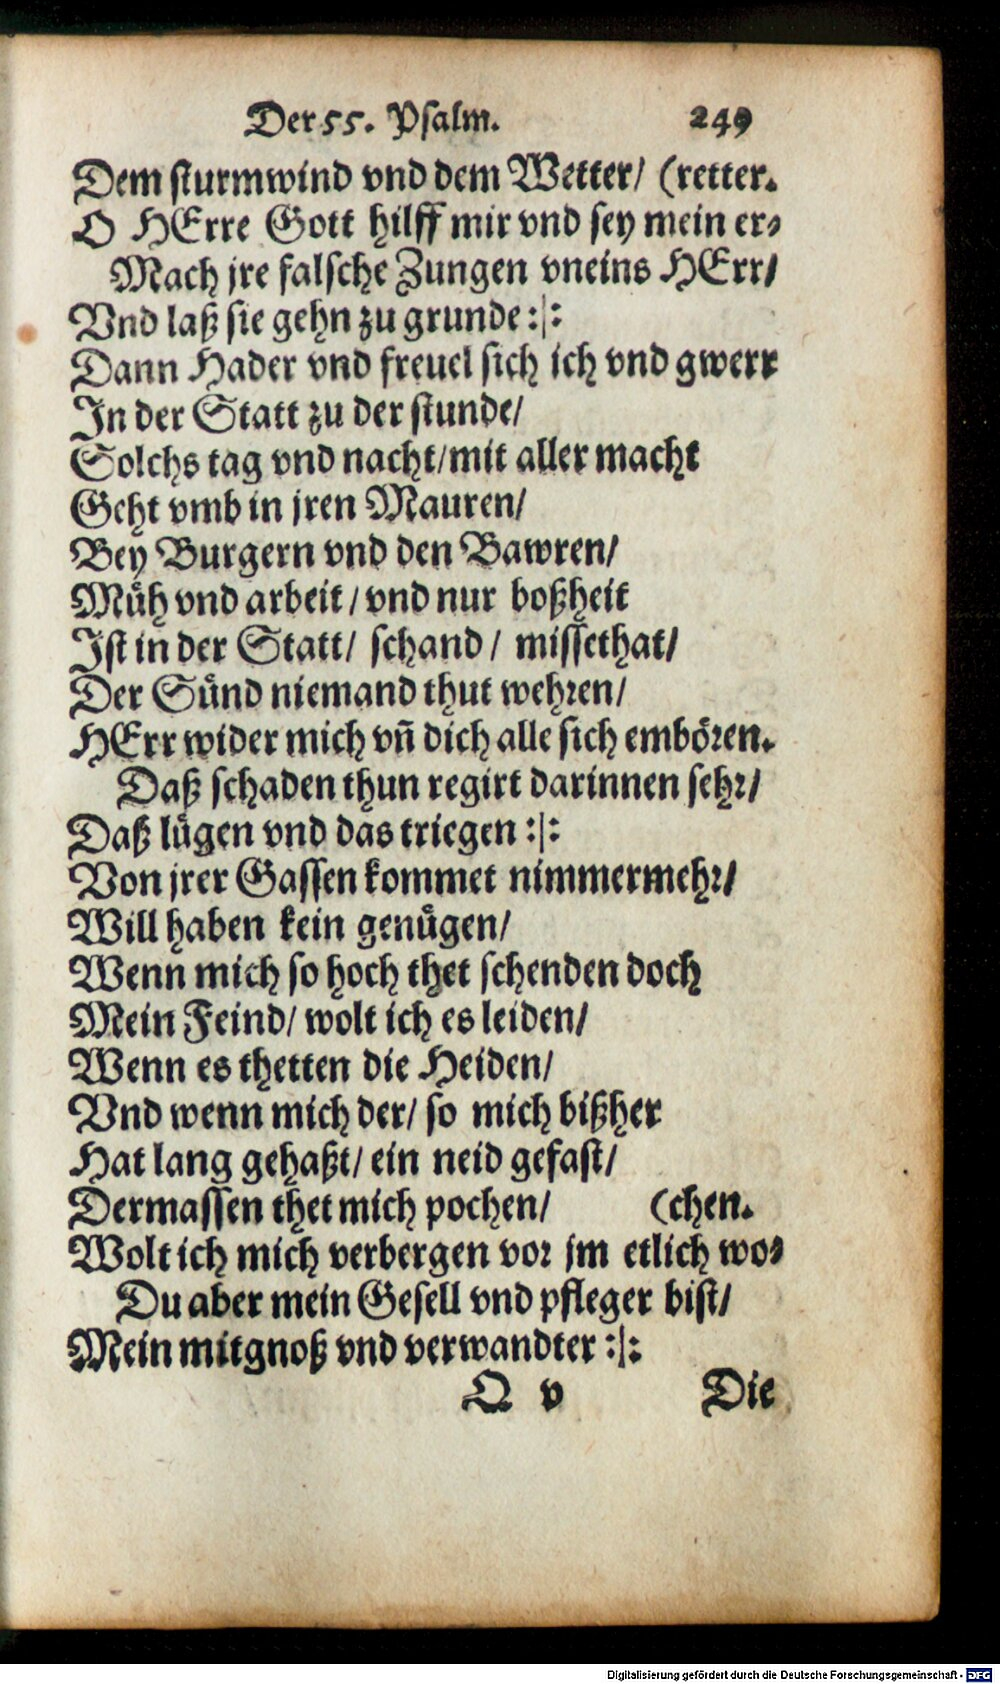 Der 55. Psalm. 249
Dem sturmwind vnd dem Wetter/ (retter.
O HErre Gott hilff mir vnd sey mein er⸗
Mach jre falsche Zungen vneins HErr/
Vnd laß sie gehn zu grunde :|:
Dann Hader vnd freuel sich ich vnd gwerr
In der Statt zu der stunde/
Solchs tag vnd nacht/ mit aller macht
Geht vmb in jren Mauren/
Bey Burgern vnd den Bawren/
Mühͤ vnd arbeit/ vnd nur boßheit
Ist in der Statt/ schand/ missethat/
Der Sünd niemand thut wehren/
HErr wider mich vn̄ dich alle sich embören.
Daß schaden thun regirt darinnen sehr/
Daß lügen vnd das triegen :|:
Von jrer Gassen kommet nimmermehr/
Will haben kein genügen/
Wenn mich so hoch thet schenden doch
Mein Feind/ wolt ich es leiden/
Wenn es thetten die Heiden/
Vnd wenn mich der/ so mich bißher
Hat lang gehaßt/ ein neid gefast/
Dermassen thet mich pochen/ (chen.
Wolt ich mich verbergen vor jm etlich wo⸗
Du aber mein Gesell vnd pfleger bist/
Mein mitgnoß vnd verwandter :|:
Q v Die
Digitalisierung gefördert durch die Deutsche Forschungsgemeinschaft - DFG